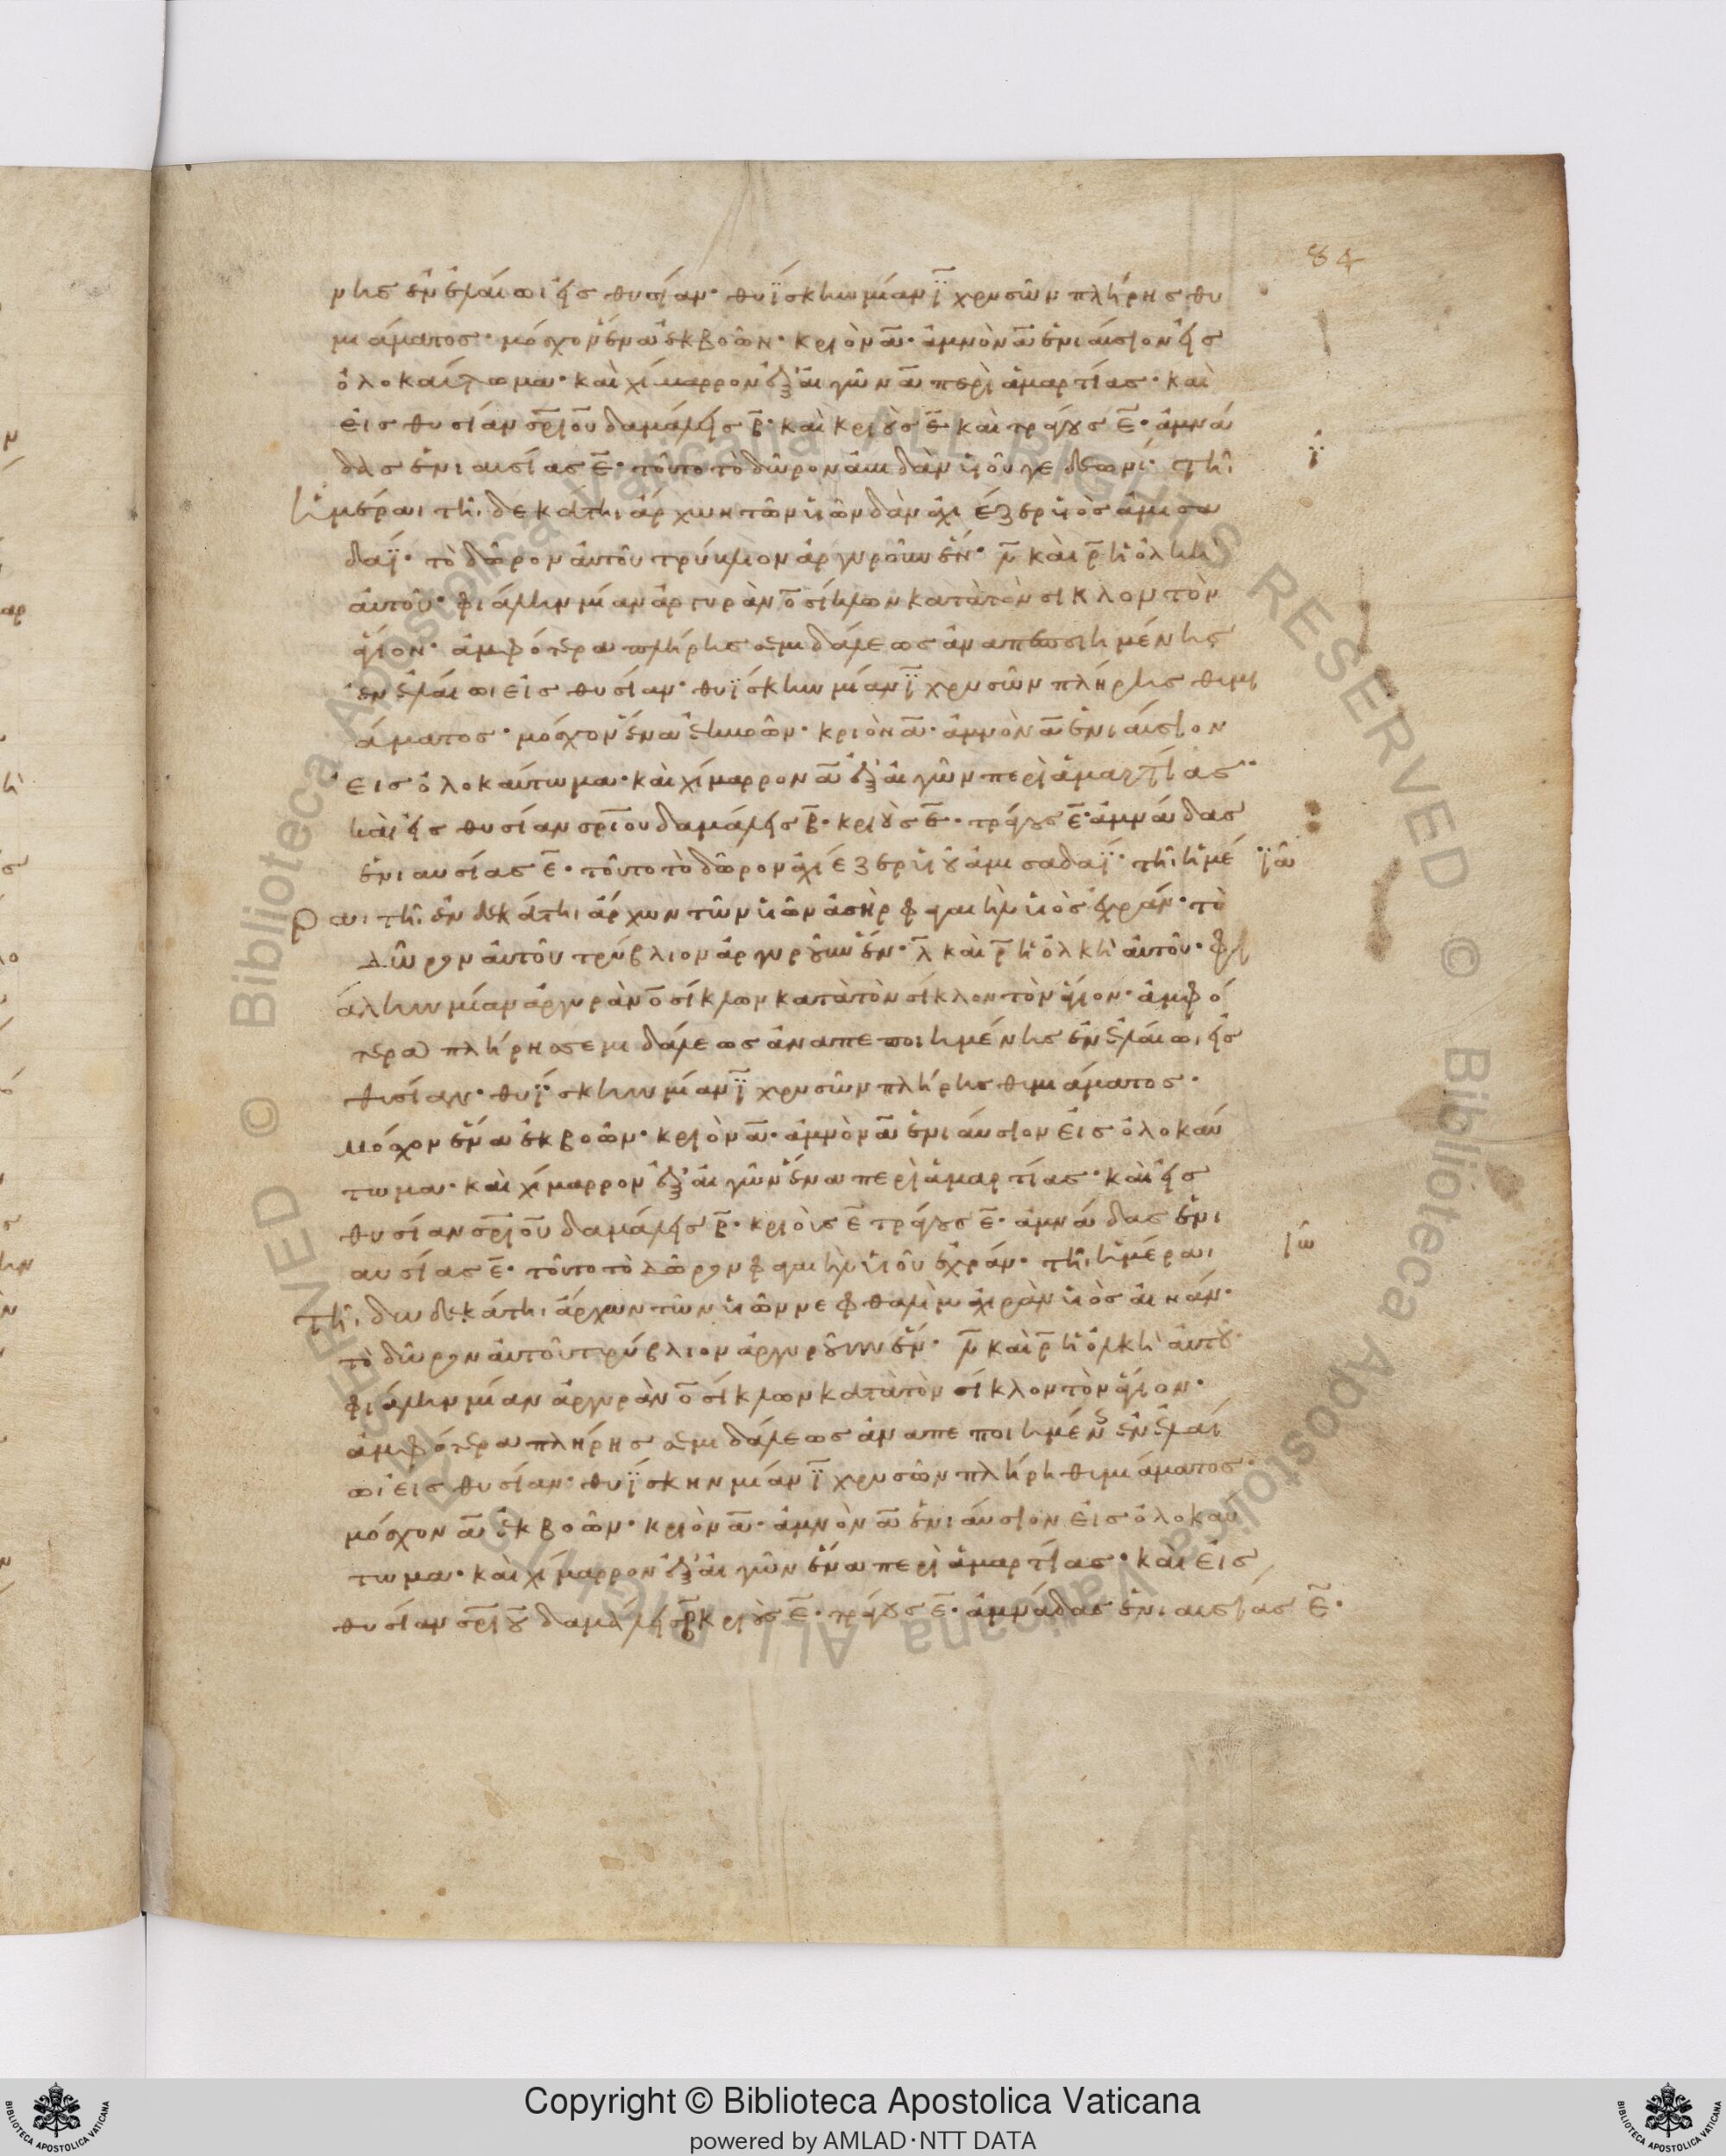 84
νης ἐν ἐλαίωι εἰς θυσίαν· θυΐσκην μίαν ι̅ χρυσῶν πλήρης θυ
μιάματος· μόσχον ἕνα ἐκ βοῶν· κριὸν α̅· ἀμνὸν α̅ ἐνιαύσιον εἰς
ὁλοκαύτωμα· καὶ χίμαρρον ἐξ αἰγῶν α̅ περὶ ἁμαρτίας· καὶ
εἰς θυσίαν σρ̅ιου δαμάλεις β̅· καὶ κριοὺς ε̅ καὶ τράγους ε̅· ἀμνά
δας ἐνιαυσίας ε̅· τοῦτο τὸ δῶρον ἀβιδὰν υἱοῦ γεδεωνί· τῆι
ι̅
ἡμέραι τῆι δεκάτηι ἄρχων τῶν υἱῶν δὰν ἀχι έζερ υἱὸς ἀμισα
δαΐ· τὸ δῶρον αὐτοῦ τρύβλιον ἀργυροῦν ἕν· λ̅ καὶ ρ̅ ἡ ὁλκὴ
αὐτοῦ· φιάλην μίαν ἀργυρὰν ο̅ σίκλων κατὰ τὸν σίκλον τὸν
ἅγιον· ἀμφότερα πλήρης σεμιδάλεως ἀναπεποιημένης
ἐν ἐλαίωι εἰς θυσίαν· θυΐσκην μίαν ι̅ χρυσῶν πλήρης θυμι
άματος· μόσχον ἕνα ἐκ βοῶν· κριὸν α̅· ἀμνὸν α̅ ἐνιαύσιον
εἰς ὁλοκαύτωμα· καὶ χίμαρρον α̅ ἐξ αἰγῶν περὶ ἁμαρτίας··
καὶ εἰς θυσίαν σρ̅ιου δαμάλεις β̅· κριοὺς ε̅· τράγους ε̅· ἀμνάδας
ἐνιαυσίας ε̅· τοῦτο τὸ δῶρον ἀχι έζερ υἱοῦ ἀμισαδαΐ· τῆι ἡμέ
ϊα
ραι τῆι ἑνδεκάτηι ἄρχων τῶν υἱῶν ἀσὴρ φαγαιὴλ υἱὸς ἐχράν· τὸ
δῶρον αὐτοῦ τρύβλιον ἀργυροῦν ἕν· λ̅ καὶ ρ̅ ἡ ὁλκὴ αὐτοῦ· φι
άλην μίαν ἀργυρὰν ο̅ σίκλων κατὰ τὸν σίκλον τὸν ἅγιον· ἀμφό
τερα πλήρης σεμιδάλεως ἀναπεποιημένης ἐν ἐλαίωι εἰς
θυσίαν· θυΐσκην μίαν ι̅ χρυσῶν πλήρης θυμιάματος·
μόσχον ἕνα ἐκ βοῶν· κριὸν α̅· ἀμνὸν α̅ ἐνιαύσιον εἰς ὁλοκαύ
τωμα· καὶ χίμαρρον ἐξ αἰγῶν ἕνα περὶ ἁμαρτίας· καὶ εἰς
θυσίαν σρ̅ιου δαμάλεις β̅· κριοὺς ε̅ τράγους ε̅· ἀμνάδας ἐνι
αυσίας ε̅· τοῦτο τὸ δῶρον φαγαιὴλ υἱοῦ ἐχράν· τῆι ἡμέραι
τῆι δωδεκάτηι ἄρχων τῶν υἱῶν νεφθαλὶμ ἀχιρὰν υἱὸς αἰνάν·
τὸ δῶρον αὐτοῦ τρύβλιον ἀργυροῦν ἕν· λ̅ καὶ ρ̅ ἡ ὁλκὴ αὐτοῦ
φιάλην μίαν ἀργυρὰν ο̅ σίκλων κατὰ τὸν σίκλον τὸν ἅγιον·
ἀμφότερα πλήρης σεμιδάλεως ἀναπεποιημένης ἐν ἐλαί
ωι εἰς θυσίαν· θυΐσκην μίαν ι̅ χρυσῶν πλήρη θυμιάματος·
μόσχον α̅ ἐκ βοῶν· κριὸν α̅· ἀμνὸν α̅ ἐνιαύσιον εἰς ὁλοκαύ
τωμα· καὶ χίμαρρον ἐξ αἰγῶν ἕνα περὶ ἁμαρτίας· καὶ εἰς
θυσίαν σρ̅ιου δαμάλεις β̅ κριοὺς ε̅· τράγους ε̅· ἀμνάδας ἐνιαυσίας ε̅·
© Biblioteca Apostolica Vaticana ALL RIGHTS RESERVED © Biblioteca Apostolica Vaticana ALL RIGHTS RESERVED
Copyright © Biblioteca Apostolica Vaticana
powered by AMLAD·NTT DATA
BIBLIOTECA APOSTOLICA VATICANA
BIBLIOTECA APOSTOLICA VATICANA